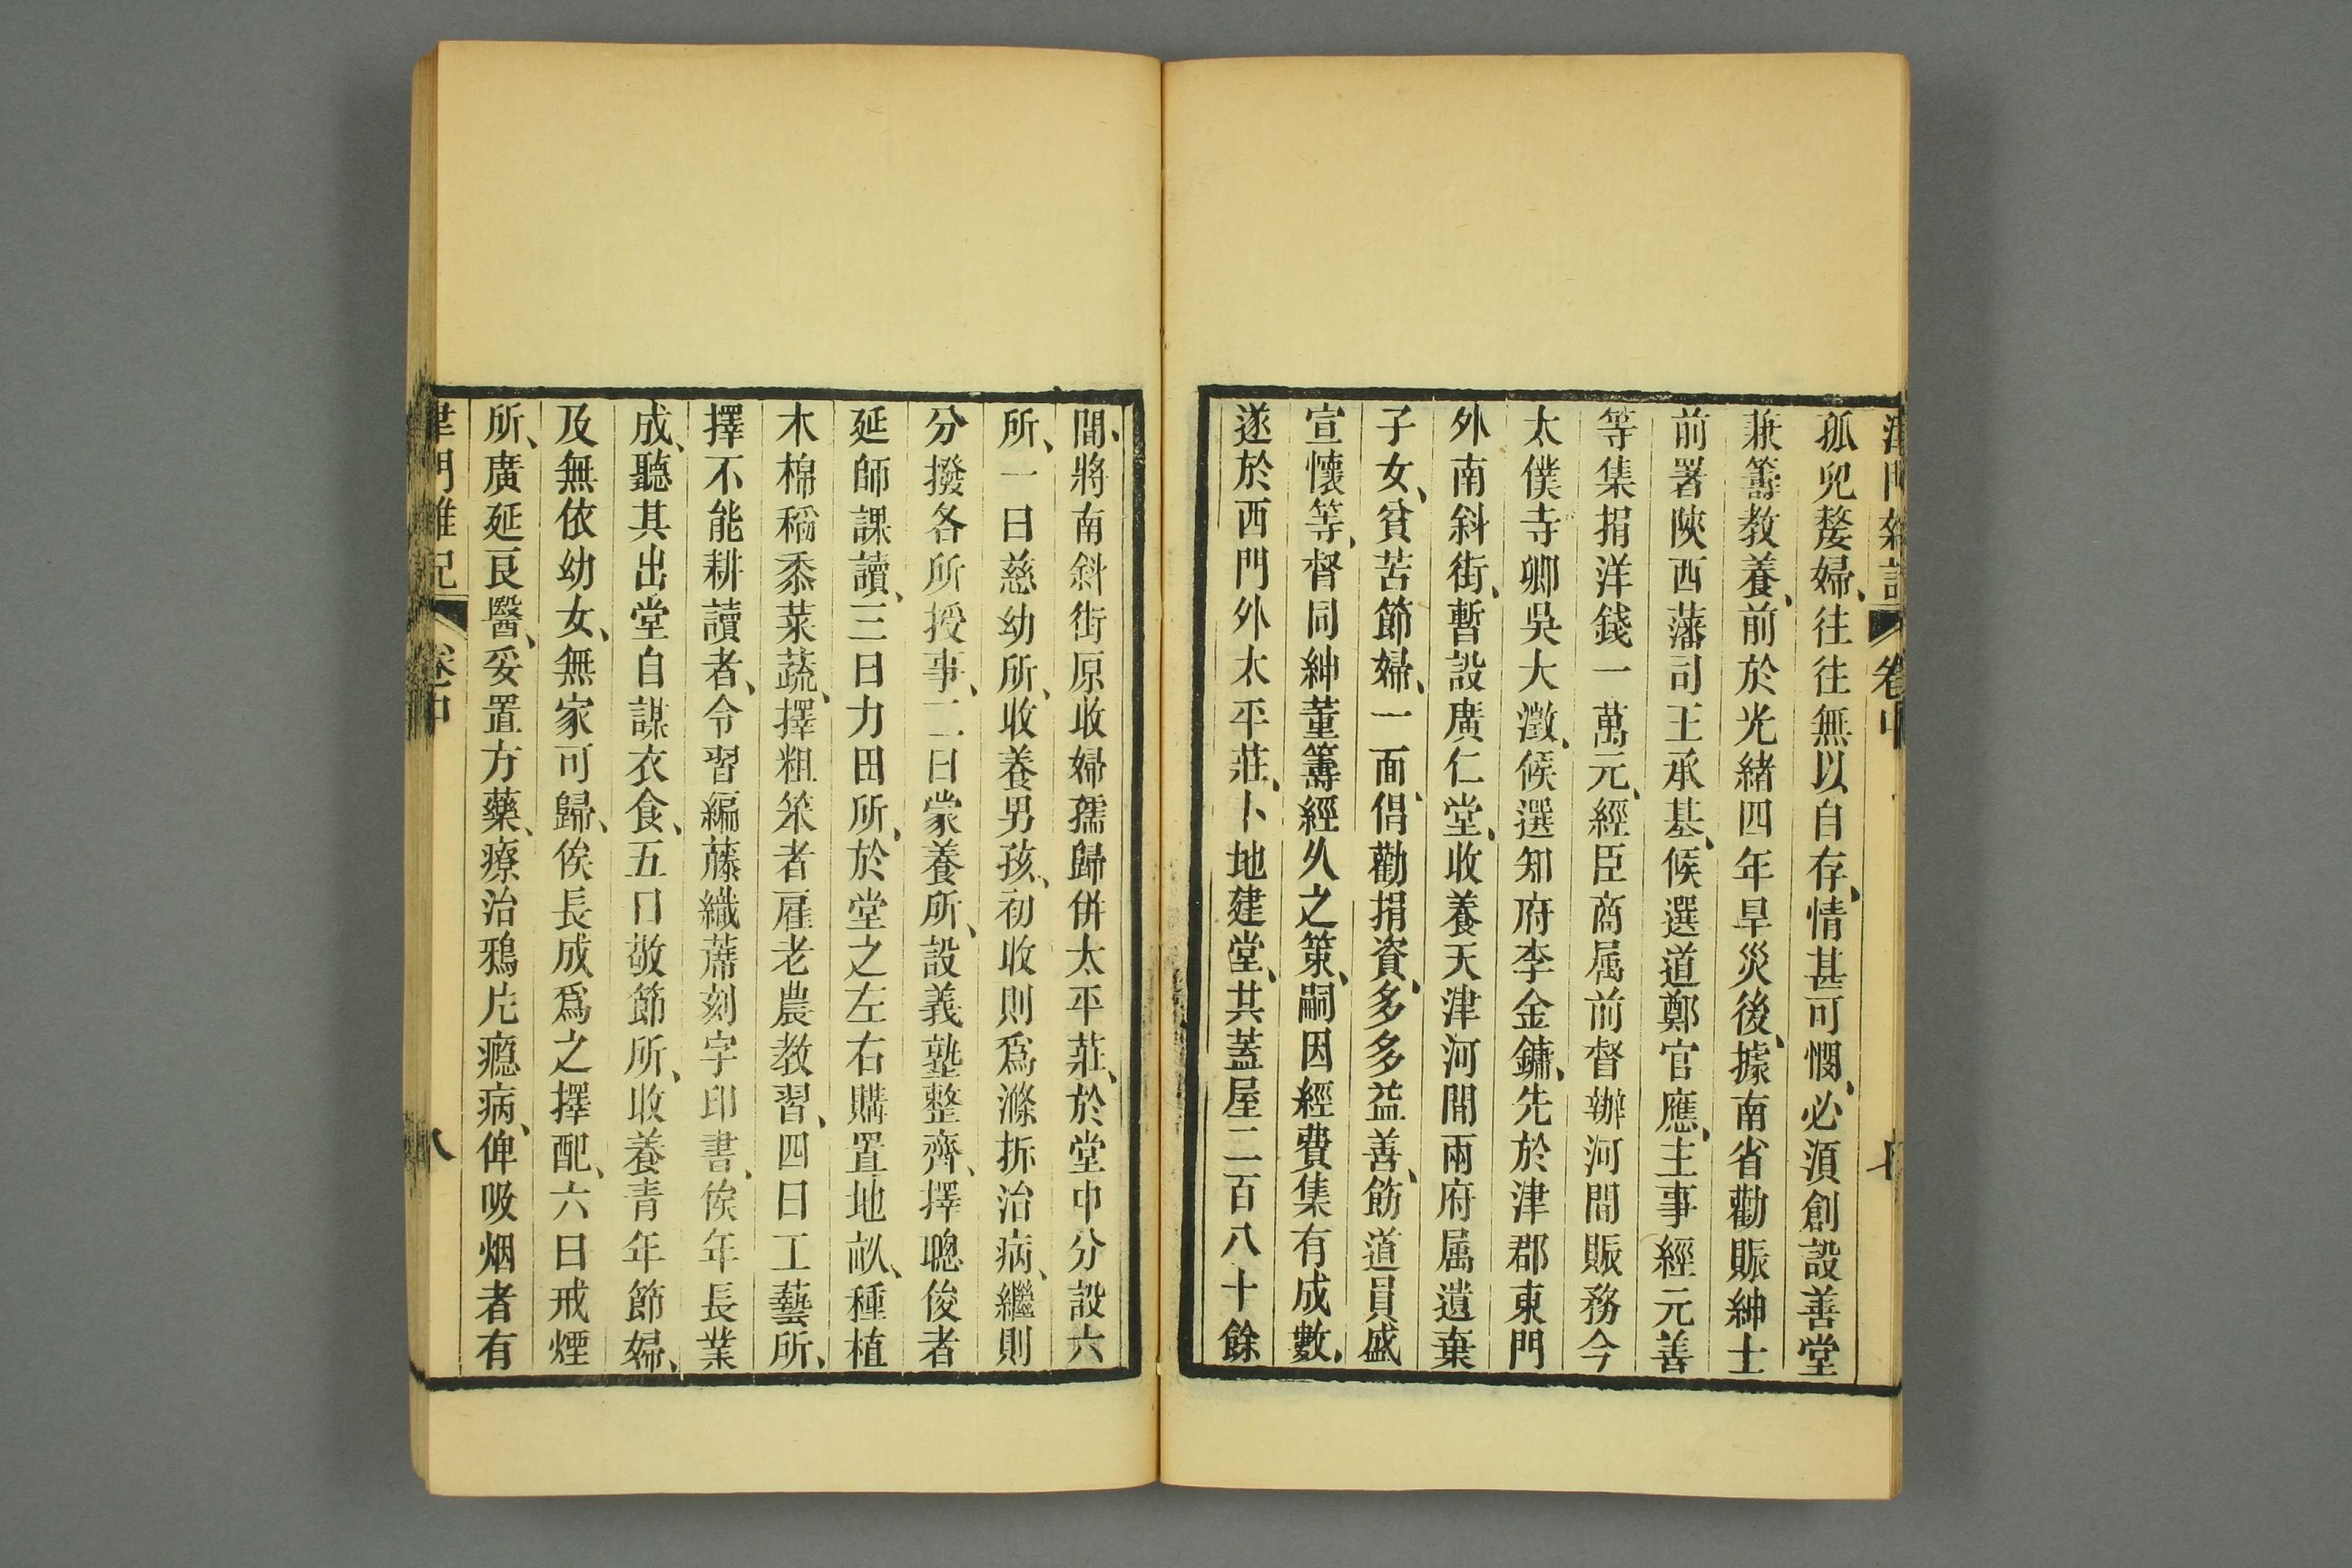 津門雜記 卷中 七
孤兒嫠婦、往往無以自存、情甚可憫、必須創設善堂
兼籌教養、前於光緒四年旱災後、據南省勸賑紳士
前署陝西藩司王承基、候選道鄭官應、主事經元善
等集捐洋錢一萬元、經臣商属前督辦河間賑務今
太僕寺卿吳大澂、候選知府李金鏞、先於津郡東門
外南斜街、暫設廣仁堂、收養天津河間兩府属遺棄
子女、貧苦節婦、一面倡勸捐資、多多益善、飭道員盛
宣懷等、督同紳董籌經久之策、嗣因經費集有成數、
遂於西門外太平莊、卜地建堂、共蓋屋二百八十餘
間、將南斜街原收婦孺歸併太平莊、於堂中分設六
所、一曰慈幼所、收養男孩、初收則爲滌拆治病、繼則
分撥各所授事、二曰蒙養所、設義塾整齊、擇聰俊者
延師課讀、三曰力田所、於堂之左右購置地畝、種植
木棉稻黍菜蔬、擇粗笨者雇老農教習、四曰工藝所、
擇不能耕讀者、令習編藤織蓆刻字印書、俟年長業
成、聽其出堂自謀衣食、五曰敬節所、收養青年節婦、
及無依幼女、無家可歸、俟長成爲之擇配、六曰戒煙
所、廣延良醫、妥置方藥、療治鴉片癮病、俾吸烟者有
津門雜記 卷中 八